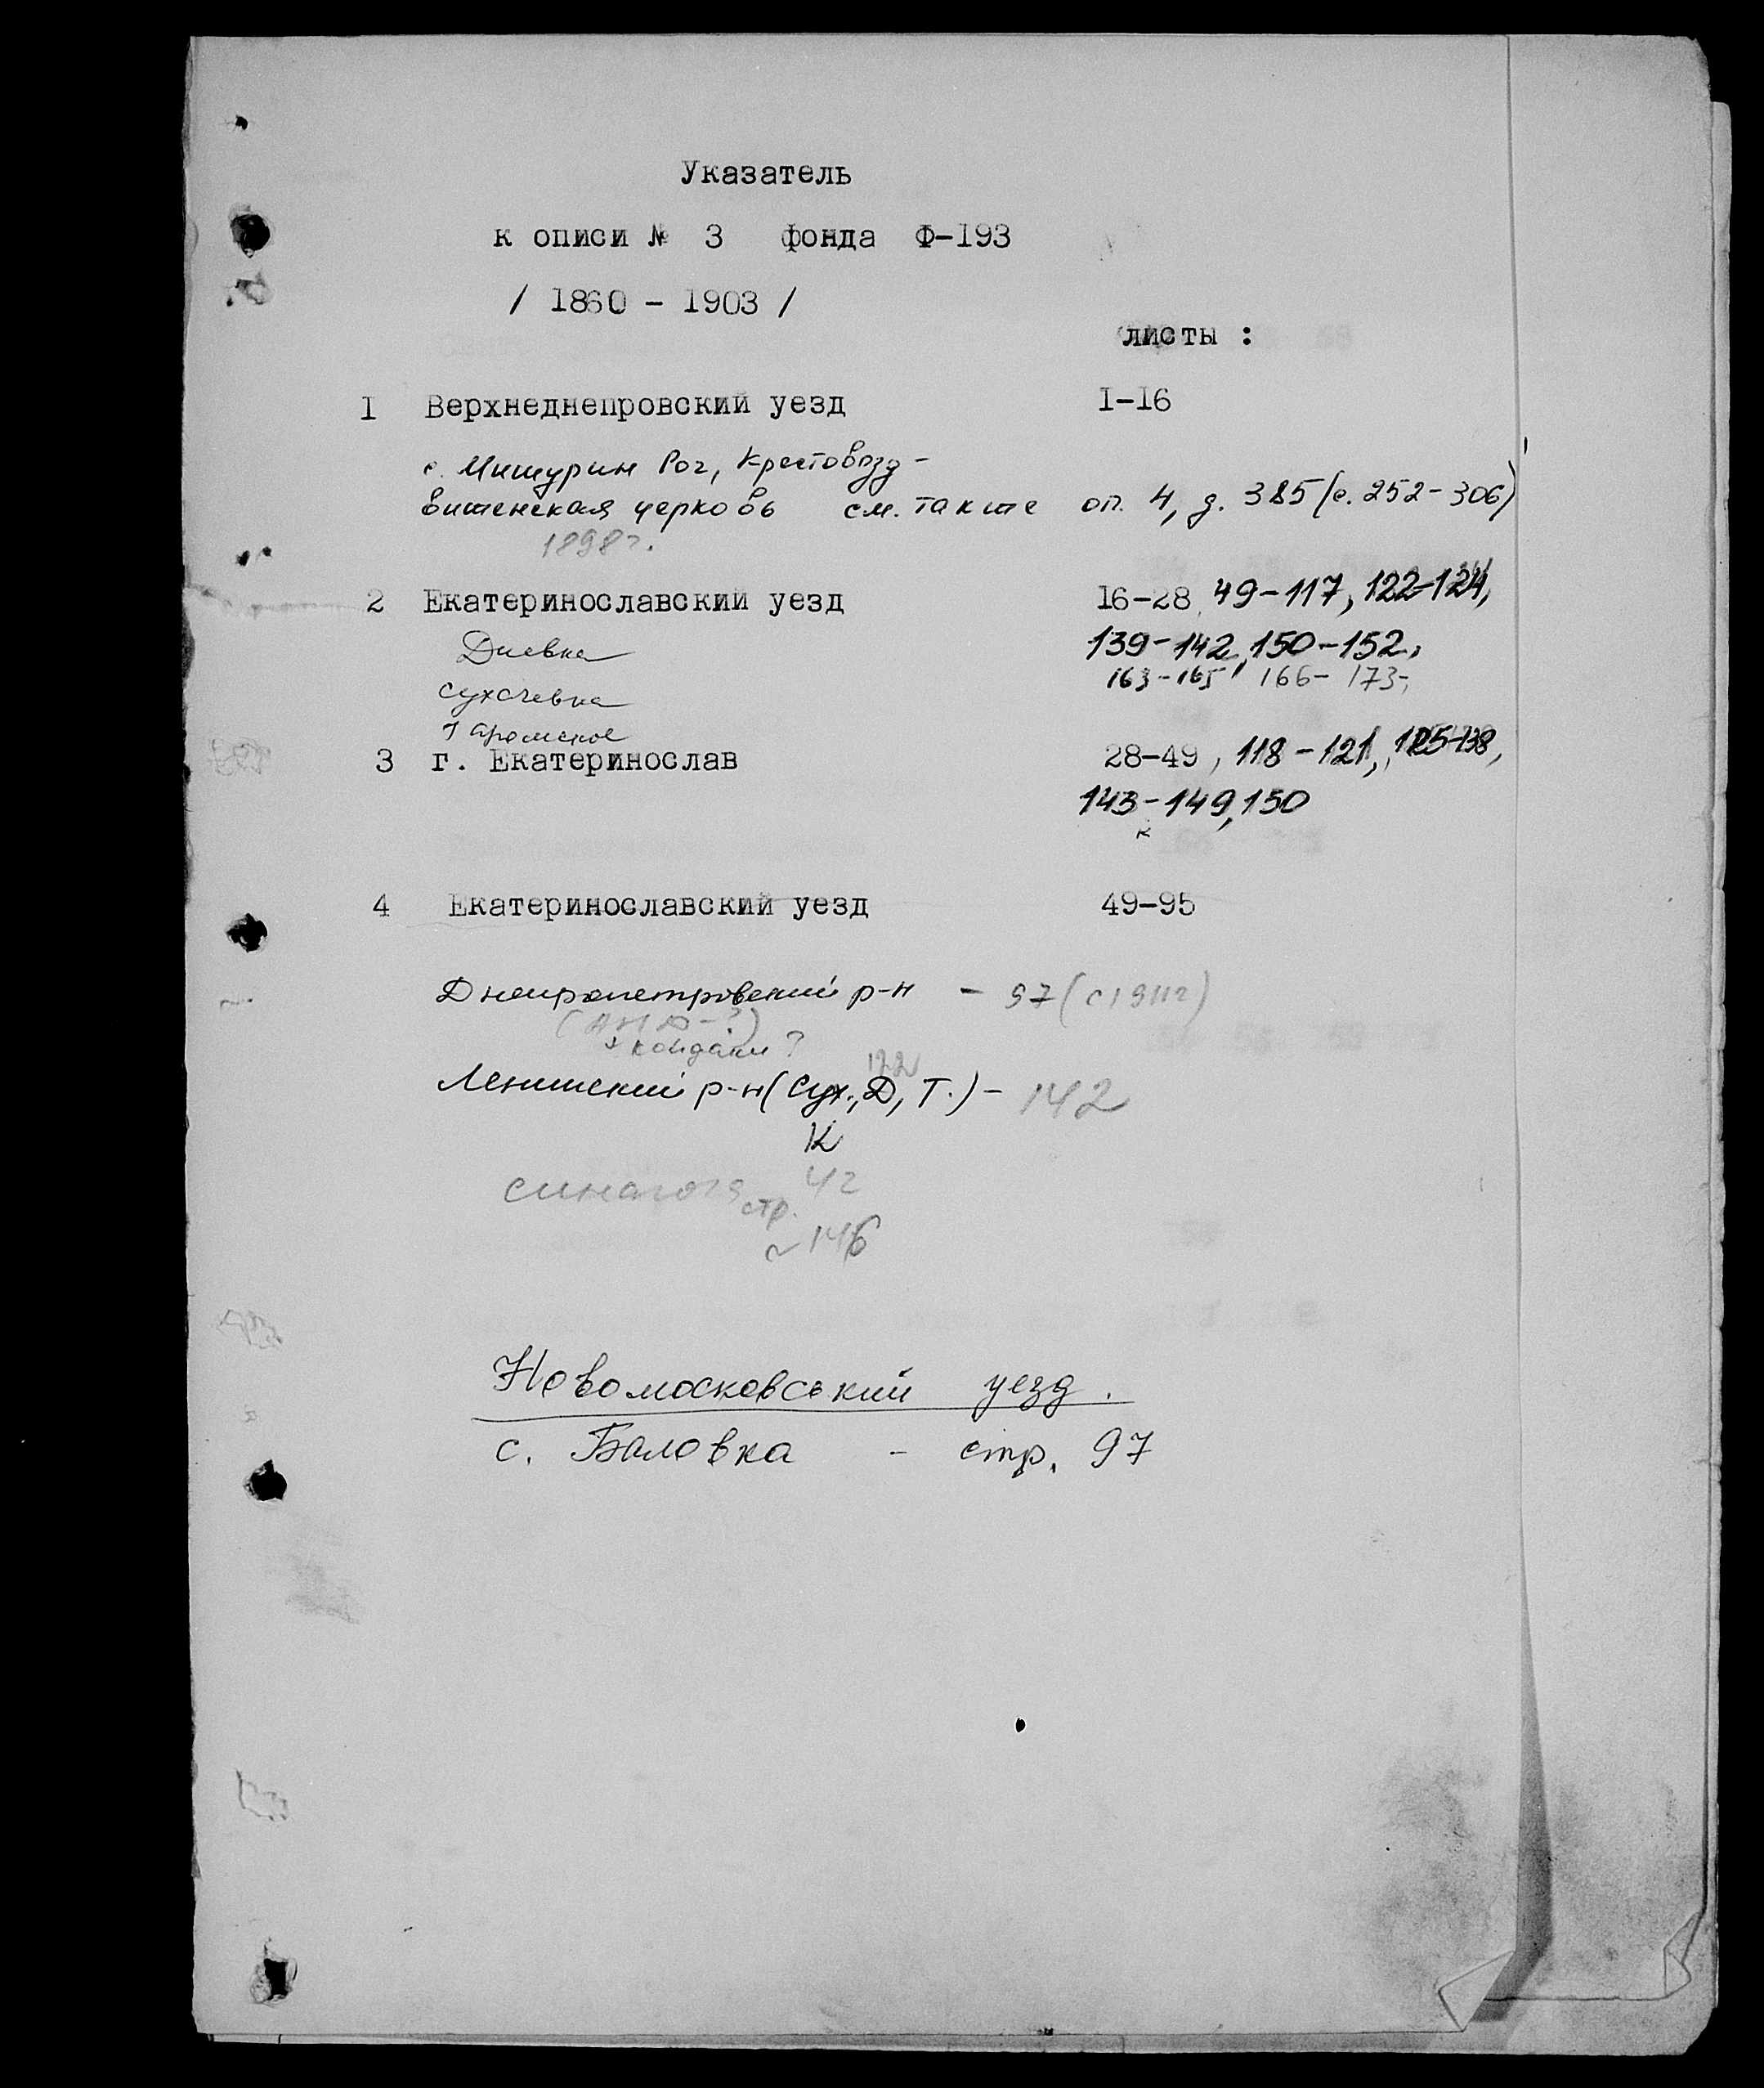 Указатель
к описи № 3 фонда Ф-193
/ 1860 - 1903 /
листы :
1 Верхнеднепровский уезд 1-16
с. Мишурин Рог, Крестовозд-
виженская церковь см. также оп. 4, д. 385 (с. 252-306)
1898 г.
2 Екатеринославский уезд 16-28, 49-117, 122-124,
Диевка 139-142, 150-152,
163-165, 166-173,
Сухачевка
Таромское
3 г. Екатеринослав 28-49, 118-121, 125-138,
143-149, 150
к
4 Екатеринославский уезд 49-95
Днепропетровский р-н - 97 (с 1911г)
Кайдаки ?
122
Ленинский р-н (Сух., Д, Т.) - 142
К
синагога стр. 42
~ 146
Новомосковський уезд.
с. Баловка - стр. 97